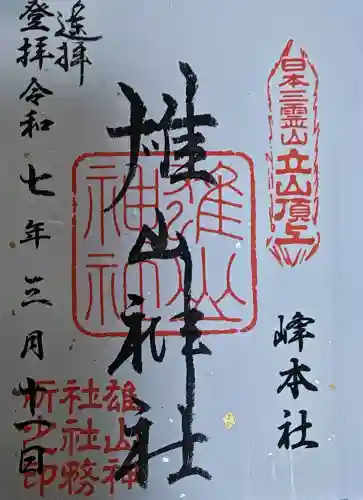 日本三霊山立山頂上
峰本社
雄山神社
雄山神社
登拝
遙拝
令和七年三月十一日
雄山神社社務所之印